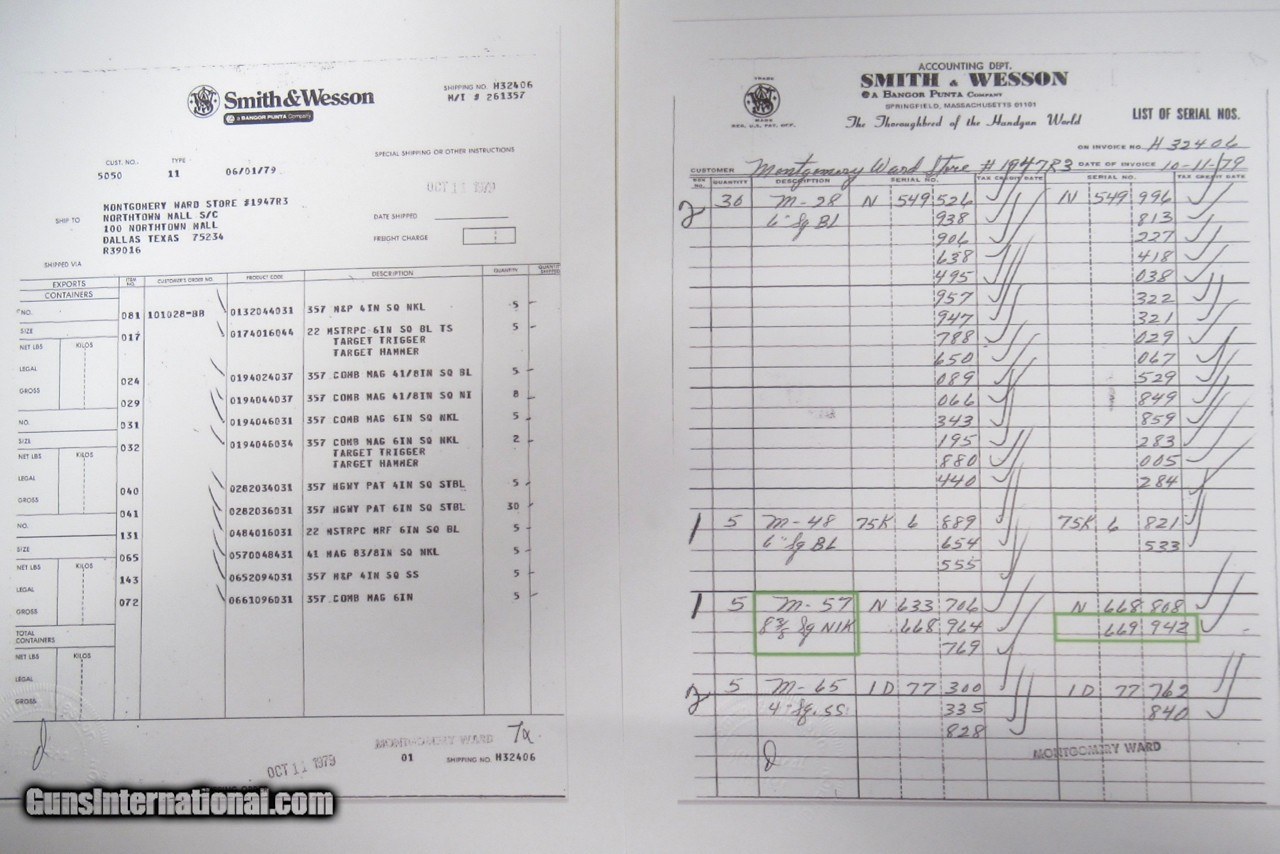 Smith & Wesson
A BANGOR PUNTA Company
SHIPPING NO. H32406
M/I # 261357
CUST. NO. TYPE
5050 11 06/01/79
SPECIAL SHIPPING OR OTHER INSTRUCTIONS
OCT 11 1979
SHIP TO
MONTGOMERY WARD STORE #1947R3
NORTHTOWN MALL S/C
100 NORTHTOWN MALL
DALLAS TEXAS 75234
R39016
DATE SHIPPED
FREIGHT CHARGE
SHIPPED VIA
EXPORTS ITEM NO. CUSTOMER'S ORDER NO. PRODUCT CODE DESCRIPTION QUANTITY QUANTITY SHIPPED
CONTAINERS
NO.
081 101028-BB 0132044031 357 M&P 4IN SQ NKL 5
SIZE
017 0174016044 22 MSTRPC 6IN SQ BL TS 5
TARGET TRIGGER
TARGET HAMMER
NET LBS KILOS
LEGAL
024 0194024037 357 COMB MAG 41/8IN SQ BL 5
GROSS
029 0194044037 357 COMB MAG 41/8IN SQ NI 8
NO.
031 0194046031 357 COMB MAG 6IN SQ NKL 5
SIZE
032 0194046034 357 COMB MAG 6IN SQ NKL 2
TARGET TRIGGER
TARGET HAMMER
NET LBS KILOS
LEGAL
040 0282034031 357 HGWY PAT 4IN SQ STBL 5
GROSS
041 0282036031 357 HGWY PAT 6IN SQ STBL 30
NO.
131 0484016031 22 MSTRPC MRF 6IN SQ BL 5
SIZE
065 0570048431 41 MAG 83/8IN SQ NKL 5
NET LBS KILOS
LEGAL
143 0652094031 357 M&P 4IN SQ SS 5
GROSS
072 0661096031 357 COMB MAG 6IN 5
TOTAL CONTAINERS
NET LBS KILOS
LEGAL
GROSS
MONTGOMERY WARD
OCT 11 1979
01 SHIPPING NO. H32406
ACCOUNTING DEPT.
SMITH & WESSON
A BANGOR PUNTA COMPANY
SPRINGFIELD, MASSACHUSETTS 01101
The Thoroughbred of the Handgun World
TRADE
MARK
REG. U.S. PAT. OFF.
LIST OF SERIAL NOS.
ON INVOICE NO. H 32406
CUSTOMER Montgomery Ward Store #1947R3 DATE OF INVOICE 10-11-79
BOX NO. QUANTITY DESCRIPTION SERIAL NO. TAX CREDIT DATE SERIAL NO. TAX CREDIT DATE
2 30 M-28 N 549 526 N 549 996
6" Sq BL 938 813
906 227
638 418
495 038
957 322
947 321
788 029
650 067
089 529
066 849
343 859
195 283
880 005
440 284
1 5 M-48 75K 6 889 75K 6 821
6" Sq BL 654 533
555
1 5 M-57 N 633 706 N 668 808
8 3/8 Sq NIK 668 964 669 942
769
2 5 M-65 1D 77 300 1D 77 762
4" Sq. SS 335 840
828
MONTGOMERY WARD
GunsInternational.com